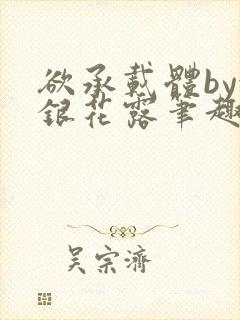 欲承載體by
銀花露筆趣
吴宗濟